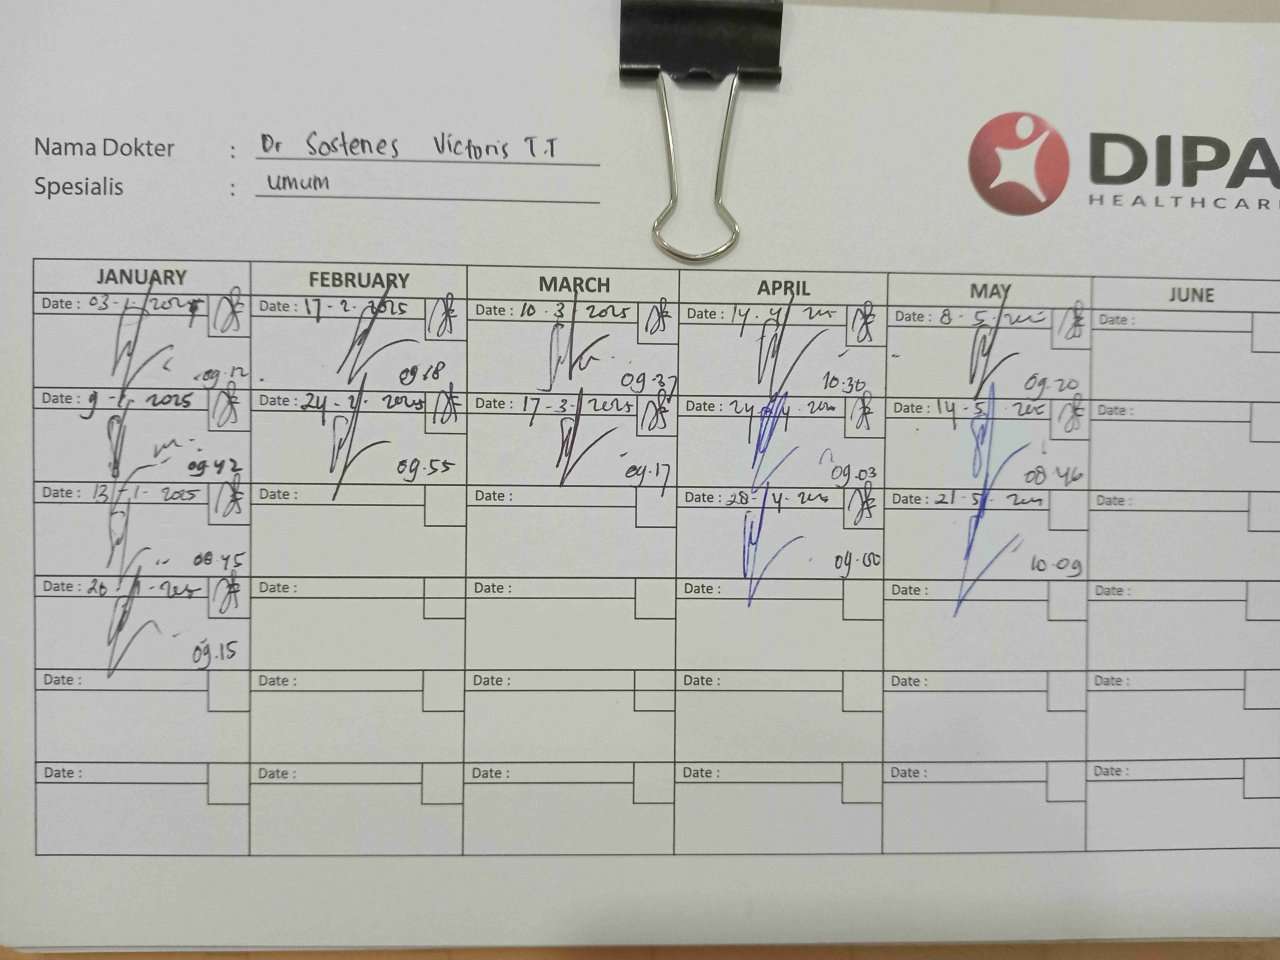 Nama Dokter : Dr Sostenes Victoris T.T
Spesialis : umum
DIPA
HEALTHCAR
JANUARY FEBRUARY MARCH APRIL MAY JUNE
Date : 03-1-2025 Date : 17-2-2025 Date : 10-3-2025 Date : 14-4 Date : 8-5 Date :
09.12 09.18 09.37 10.30 09.20
Date : 9-1-2025 Date : 24-2-2025 Date : 17-3-2025 Date : 24-4 Date : 14-5 Date :
09.42 09.55 09.17 09.03 08.46
Date : 13-1-2025 Date : Date : Date : 28-4 Date : 21-5 Date :
09.00 10.09
Date : 20-1 Date : Date : Date : Date : Date :
09.15
Date : Date : Date : Date : Date : Date :
Date : Date : Date : Date : Date : Date :